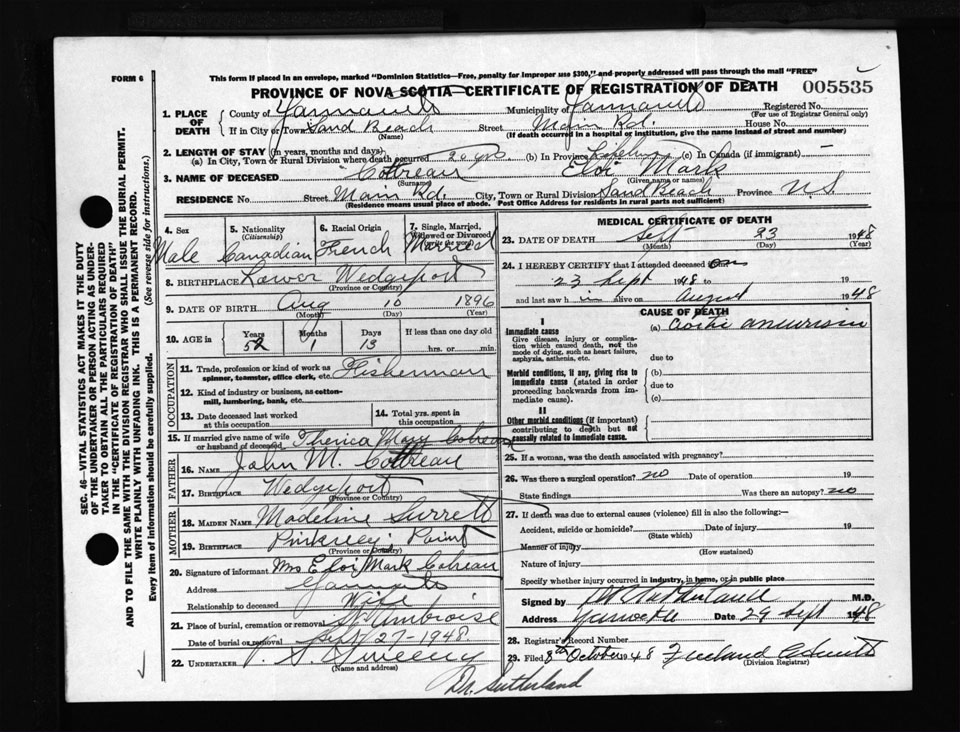 FORM 6
This form if placed in an envelope, marked "Dominion Statistics—Free, penalty for improper use $300," and properly addressed will pass through the mail "FREE"
PROVINCE OF NOVA SCOTIA—CERTIFICATE OF REGISTRATION OF DEATH
005535
1. PLACE OF DEATH
County of Yarmouth Municipality of Yarmouth Registered No.
(For use of Registrar General only)
If in City or Town Sand Beach Street Main Rd. House No.
(Name) (If death occurred in a hospital or institution, give the name instead of street and number)
2. LENGTH OF STAY (in years, months and days)
(a) In City, Town or Rural Division where death occurred 20 yrs. (b) In Province Lifetime (c) In Canada (if immigrant) —
3. NAME OF DECEASED Cottreau Eloi Mark
(Surname) (Given name or names)
RESIDENCE No. Street Main Rd. City, Town or Rural Division Sand Beach Province N.S.
(Residence means usual place of abode. Post Office Address for residents in rural parts not sufficient)
4. Sex Male
5. Nationality (Citizenship) Canadian
6. Racial Origin French
7. Single, Married, Widowed or Divorced (write the word) Married
8. BIRTHPLACE Lower Wedgeport
(Province or Country)
9. DATE OF BIRTH Aug 10 1896
(Month) (Day) (Year)
10. AGE in Years Months Days If less than one day old
52 1 13 hrs. or min.
OCCUPATION
11. Trade, profession or kind of work as spinner, teamster, office clerk, etc. Fisherman
12. Kind of industry or business, as cotton-mill, lumbering, bank, etc.
13. Date deceased last worked at this occupation
14. Total yrs. spent in this occupation
15. If married give name of wife or husband of deceased Mary
FATHER
16. NAME John M. Cottreau
17. BIRTHPLACE Wedgeport
(Province or Country)
MOTHER
18. MAIDEN NAME Madeline Surrett
19. BIRTHPLACE Point
(Province or Country)
20. Signature of informant Mrs Eloi Mark Cotreau
Address Yarmouth
Relationship to deceased Wife
21. Place of burial, cremation or removal St Ambroise
Date of burial or removal Sept 27-1948.
22. UNDERTAKER V. S. Sweeny
(Name and address)
MEDICAL CERTIFICATE OF DEATH
23. DATE OF DEATH Sept 23 1948
(Month) (Day) (Year)
24. I HEREBY CERTIFY that I attended deceased on
23 Sept 1948 to 19
and last saw him alive on August 1948
CAUSE OF DEATH
I
Immediate cause (a) aortic aneurism
Give disease, injury or complication which caused death, not the mode of dying, such as heart failure, asphyxia, asthenia, etc.
due to
Morbid conditions, if any, giving rise to immediate cause (stated in order proceeding backwards from immediate cause). (b)
due to
(c)
II
Other morbid conditions (if important) contributing to death but not causally related to immediate cause.
25. If a woman, was the death associated with pregnancy?
26. Was there a surgical operation? no Date of operation 19
State findings Was there an autopsy? no
27. If death was due to external causes (violence) fill in also the following:—
Accident, suicide or homicide? Date of injury 19
(State which)
Manner of injury
(How sustained)
Nature of injury
Specify whether injury occurred in industry, in home, or in public place
Signed by M.D.
Address Yarmouth Date 29 Sept 1948
28. Registrar's Record Number
29. Filed 8th October 1948 Freeland
(Division Registrar)
Dr. Sutherland
SEC. 46—VITAL STATISTICS ACT MAKES IT THE DUTY
OF THE UNDERTAKER OR PERSON ACTING AS UNDER-
TAKER TO OBTAIN ALL THE PARTICULARS REQUIRED
IN THE "CERTIFICATE OF REGISTRATION OF DEATH"
AND TO FILE THE SAME WITH THE DIVISION REGISTRAR WHO SHALL ISSUE THE BURIAL PERMIT.
WRITE PLAINLY WITH UNFADING INK. THIS IS A PERMANENT RECORD.
Every item of information should be carefully supplied. (See reverse side for instructions.)